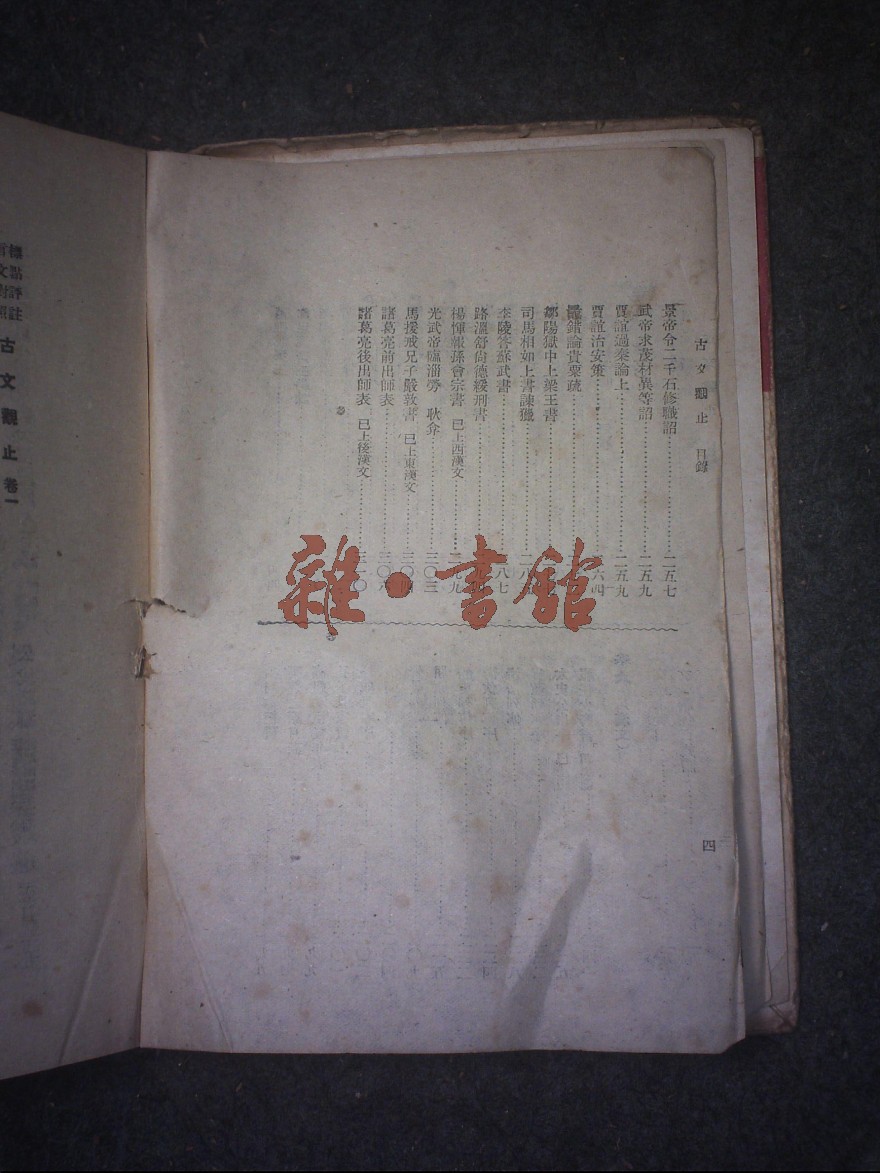 古文觀止 目錄
景帝令二千石修職詔……二五七
武帝求茂材異等詔……二五九
賈誼過秦論上……二五九
賈誼治安策……六四
鼂錯論貴粟疏
鄒陽獄中上梁王書
司馬相如上書諫獵……二八
李陵答蘇武書……八七
路溫舒尚德緩刑書
楊惲報孫會宗書 已上西漢文……二九九
光武帝臨淄勞 耿弇……三〇三
馬援戒兄子嚴敦書 已上東漢文……三〇四
諸葛亮前出師表……三〇六
諸葛亮後出師表 已上後漢文……三一〇
四
雜·書館
標點評註
言文對照
古文觀止卷一